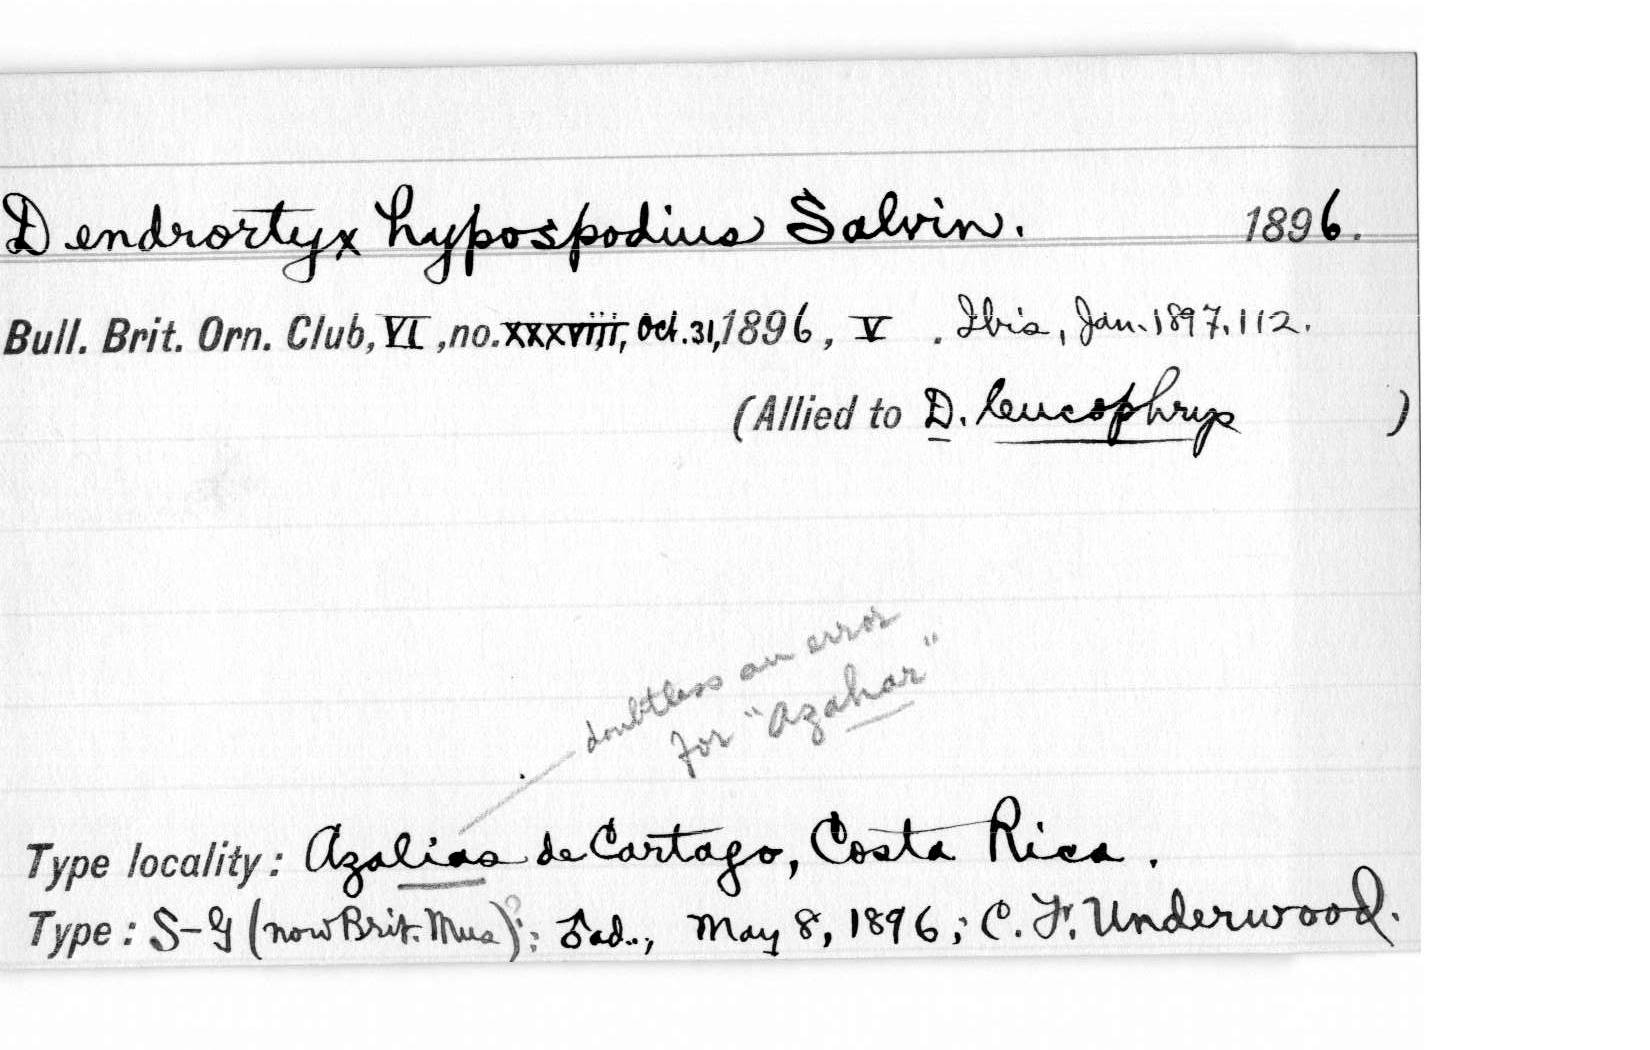 Dendrortyx hypospodius Salvin. 1896.
Bull. Brit. Orn. Club, VI, no. xxxviij, Oct. 31, 1896, V . Ibis, Jan. 1897, 112.
(Allied to D. leucophrys )
doubtless an error
for "Azahar"
Type locality: Azalias de Cartago, Costa Rica.
Type: S-G (now Brit. Mus)?; ♂ ad., May 8, 1896; C. F. Underwood.